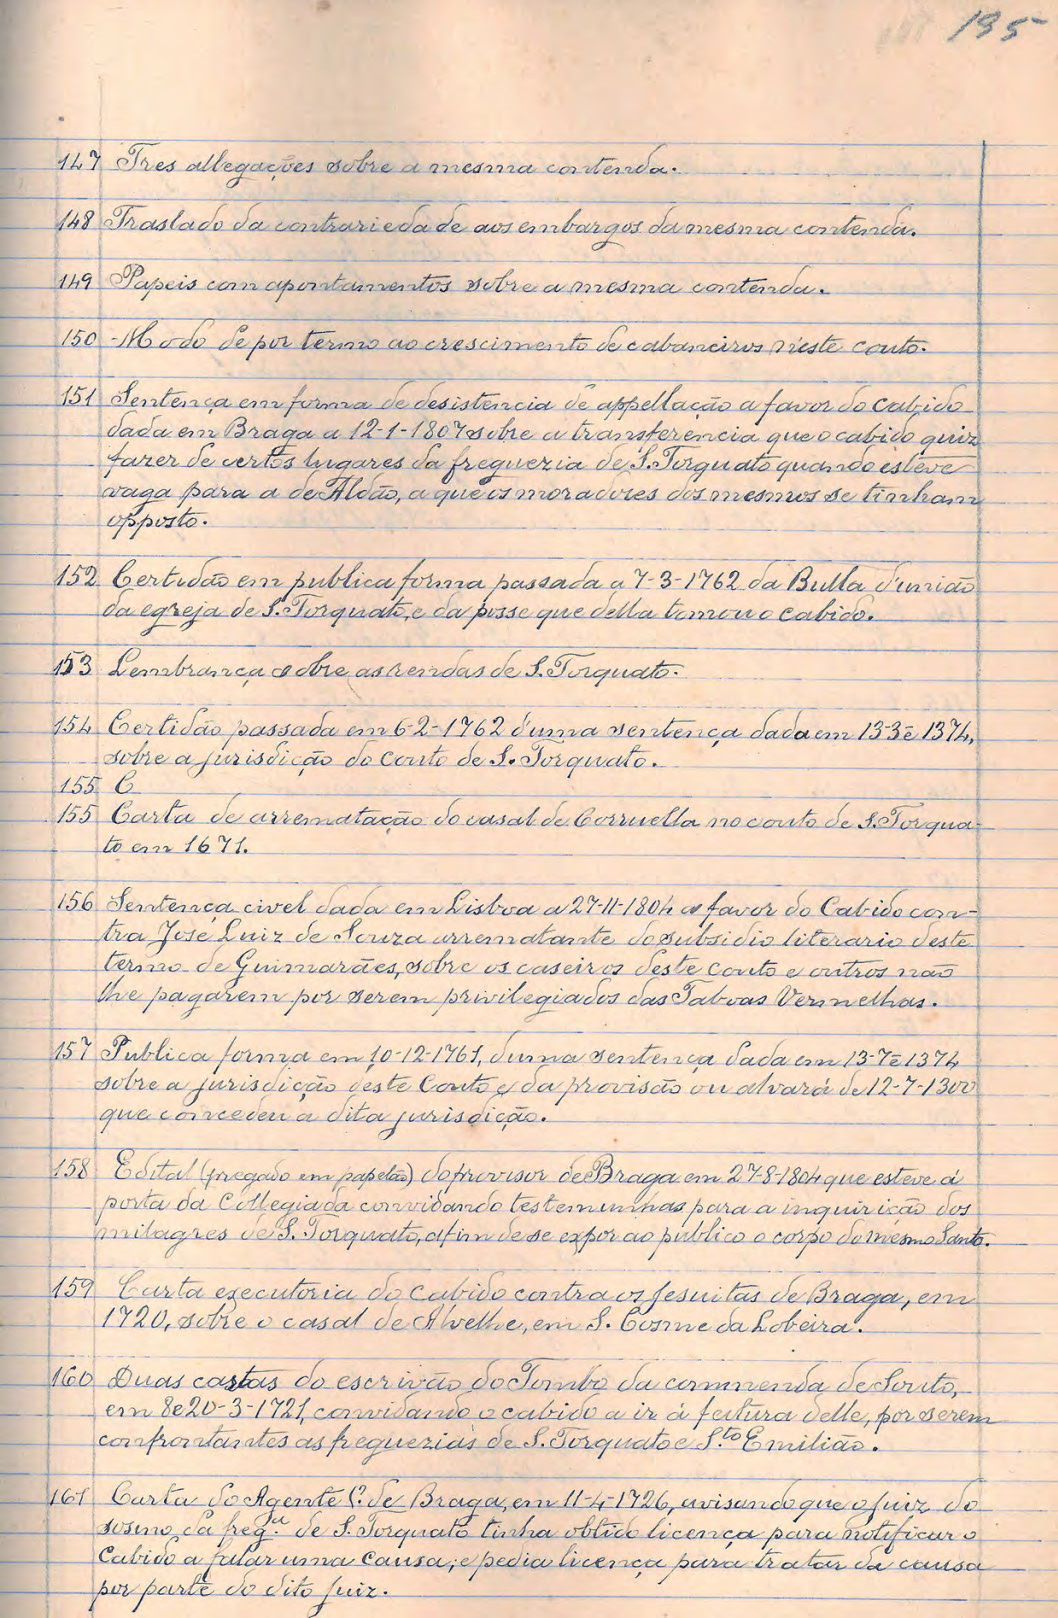 195
147 Tres allegações sobre a mesma contenda.
148 Traslado da contrariedade aos embargos da mesma contenda.
149 Papeis com apontamentos sobre a mesma contenda.
150 Modo de por termo ao crescimento de cabaneiros n'este couto.
151 Sentença em forma de desistencia de appellação a favor do cabido
dada em Braga a 12-1-1807 sobre a transferencia que o cabido quiz
fazer de certos lugares da freguezia de S. Torquato quando esteve
vaga para a de Aldão, a que os moradores dos mesmos se tinham
opposto.
152 Certidão em publica forma passada a 7-3-1762 da Bulla d'união
da egreja de S. Torquato, e da posse que della tomou o cabido.
153 Lembrança sobre as rendas de S. Torquato.
154 Certidão passada em 6-2-1762 d'uma sentença dada em 13-3-1374,
sobre a jurisdição do couto de S. Torquato.
155 C
155 Carta de arrematação do casal de Corruella no couto de S. Torqua-
to em 1671.
156 Sentença civel dada em Lisboa a 27-11-1804 a favor do Cabido con-
tra José Luiz de Souza arrematante do subsidio literario deste
termo de Guimarães, sobre os caseiros deste couto e outros não
lhe pagarem por serem privilegiados das Taboas Vermelhas.
157 Publica forma em 10-12-1761, duma sentença dada em 13-7-1374
sobre a jurisdição deste Couto e da provisão ou alvará de 12-7-1300
que concedeu a dita jurisdição.
158 Edital (pregado em papelão) do provisor de Braga em 27-8-1804 que esteve á
porta da Collegiada convidando testemunhas para a inquirição dos
milagres de S. Torquato, afim de se expor ao publico o corpo do mesmo Santo.
159 Carta executoria do cabido contra os Jesuitas de Braga, em
1720, sobre o casal de Alvelhe, em S. Cosme da Lobeira.
160 Duas cartas do escrivão do Tombo da commenda de Souto,
em 8 e 20-3-1721, convidando o cabido a ir á feitura delle, por serem
confrontantes as freguezias de S. Torquato e S.to Emilião.
161 Carta do Agente P.e de Braga, em 11-4-1726, avisando que o Juiz do
sosino da freg.a de S. Torquato tinha obtido licença para notificar o
Cabido a falar uma causa, e pedia licença para tratar da causa
por parte do dito Juiz.